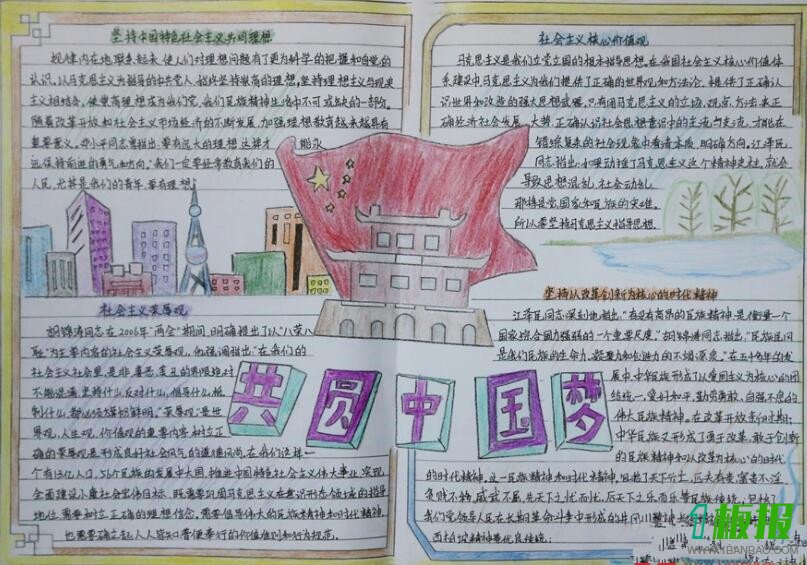 坚持中国特色社会主义共同理想
规律内在地联系起来,使人们对理想问题有了更为科学的把握和自觉的
认识。以马克思主义为指导的中共党人,始终坚持崇高的理想,坚持理想主义与现实
主义相结合,使崇高理想成为我们党、我们民族精神生活中不可或缺的一部份。
随着改革开放和社会主义市场经济的不断发展,加强理想教育越来越具有
重要意义。邓小平同志曾指出:要有远大的理想,这样才 能永
远保持前进的勇气和方向。"我们一定要经常教育我们的
人民,尤其是我们的青年,要有理想"
社会主义荣辱观
胡锦涛同志在2006年"两会"期间,明确提出了以"八荣八
耻"为主要内容的社会主义荣辱观,他强调指出"在我们的
社会主义社会里,是非、善恶、美丑的界限绝对
不能混淆,坚持什么,反对什么,倡导什么,抵
制什么,都必须旗帜鲜明。"荣辱观是世
界观、人生观、价值观的重要内容,树立正
确的荣辱观是形成良好社会风气的道德问题,在我们这样一
个有13亿人口、56个民族的发展中大国,推进中国特色社会主义伟大事业,实现
全面建设小康社会宏伟目标,既需要巩固马克思主义在意识形态领域的指导
地位,需要树立正确的理想信念,需要倡导伟大的民族精神和时代精神,
也需要确立起人人皆知、普遍奉行的价值准则和行为规范。
社会主义核心价值观
马克思主义是我们立党立国的根本指导思想。在我国社会主义核心价值体
系建设中马克思主义为我们提供了正确的世界观和方法论,提供了正确认
识世界和改造的强大思想武器。只有用马克思主义的立场、观点、方法来正
确经济社会发展大势,正确认识社会思想意识中的主流与支流,才能在
错综复杂的社会现象中看清本质、明确方向。江泽民
同志指出:如果动摇了马克思主义这个精神支柱,就会
导致思想混乱、社会动乱,
那将是党、国家和民族的灾难。
所以要坚持马克思主义指导思想。
坚持以改革创新为核心的时代精神
江泽民同志深刻地指出:"有没有高昂的民族精神,是衡量一个
国家综合国力强弱的一个重要尺度。"胡锦涛同志指出,"民族精神
是我们民族的生命力、凝聚力和创造力的不竭源泉。"在五千年的发
展中,中华民族形成了以爱国主义为核心的团
结统一、爱好和平、勤劳勇敢、自强不息的
伟大民族精神。在改革开放新时期,
中华民族又形成了勇于改革、敢于创新
的民族精神和以改革为核心的时代
的时代精神。这一民族精神和时代精神,
贫贱不移,威武不屈,先天下之忧而忧,后天下之乐而乐等民族传统,
我们党领导人民在长期革命斗争中形成的井冈
西柏坡精神等优良传统;
共圆中国梦
1板报
WWW.1BANBAO.COM